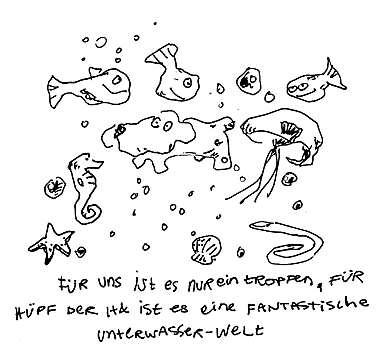 FÜR UNS iST ES NUR EIN TROPFEN, FÜR
HÜPF DER IST ES EINE FANTASTISCHE
UNTERWASSER-WELT